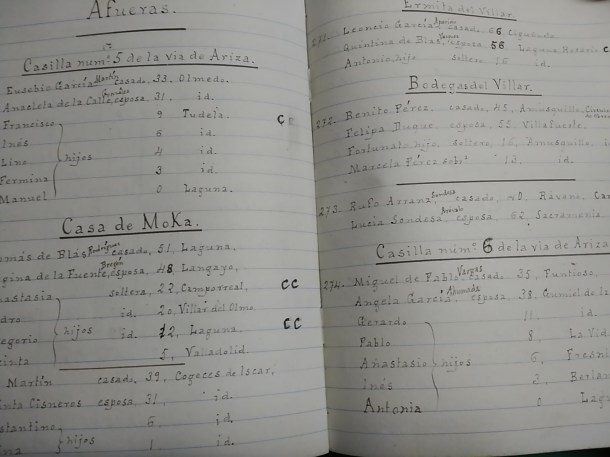 Afueras.
Casilla num.º 5 de la via de Ariza.
Eusebio García Martín casado, 33, Olmedo.
Anacleta de la Calle, esposa 31, id.
Francisco 9 Tudela. C
Inés 6 id.
Lino hijos 4 id.
Fermina 3 id.
Manuel 0 Laguna.
Casa de MoKa.
omás de Blás Rodríguez casado, 51, Laguna,
gina de la Fuente, esposa, 48, Langayo,
nastasia soltera, 22, Camporreal, CC
dro id. 20, Villar del Olmo.
egorio hijos id. 12, Laguna, CC
cinta 5, Valladolid.
Martín casado, 39, Cogeces de Iscar,
nta Cisneros esposa, 31, id.
stantino, 6, id.
na hijos 1 id.
Ermita del Villar.
Leoncio García casado 66
Quintina de Blas, esposa 56 Laguna
Antonio, hijo soltero, 16 id.
Bodegas del Villar.
272. Benito Pérez, casado, 45, Amusquillo,
Felipa Duque esposa, 55 Villafuerte,
Fortunato hijo soltero, 16, Amusquillo, i
Marcela Pérez sobª 13, id.
273. Rufo Arranz casado, Rávano, Ca
Lucia Sendesa esposa, 62, Sacramenia,
Casilla núm.º 6 de la via de Ariza
274. Miguel de Pablo Vargas casado, 35,
Angela García, Ahumada esposa, 38, Gumiel de la
Gerardo 11, id.
Pablo 8, La Vid
Añastasio hijos 6, Fresni
Inés 3, Berlan
Antonia 0 Lagu